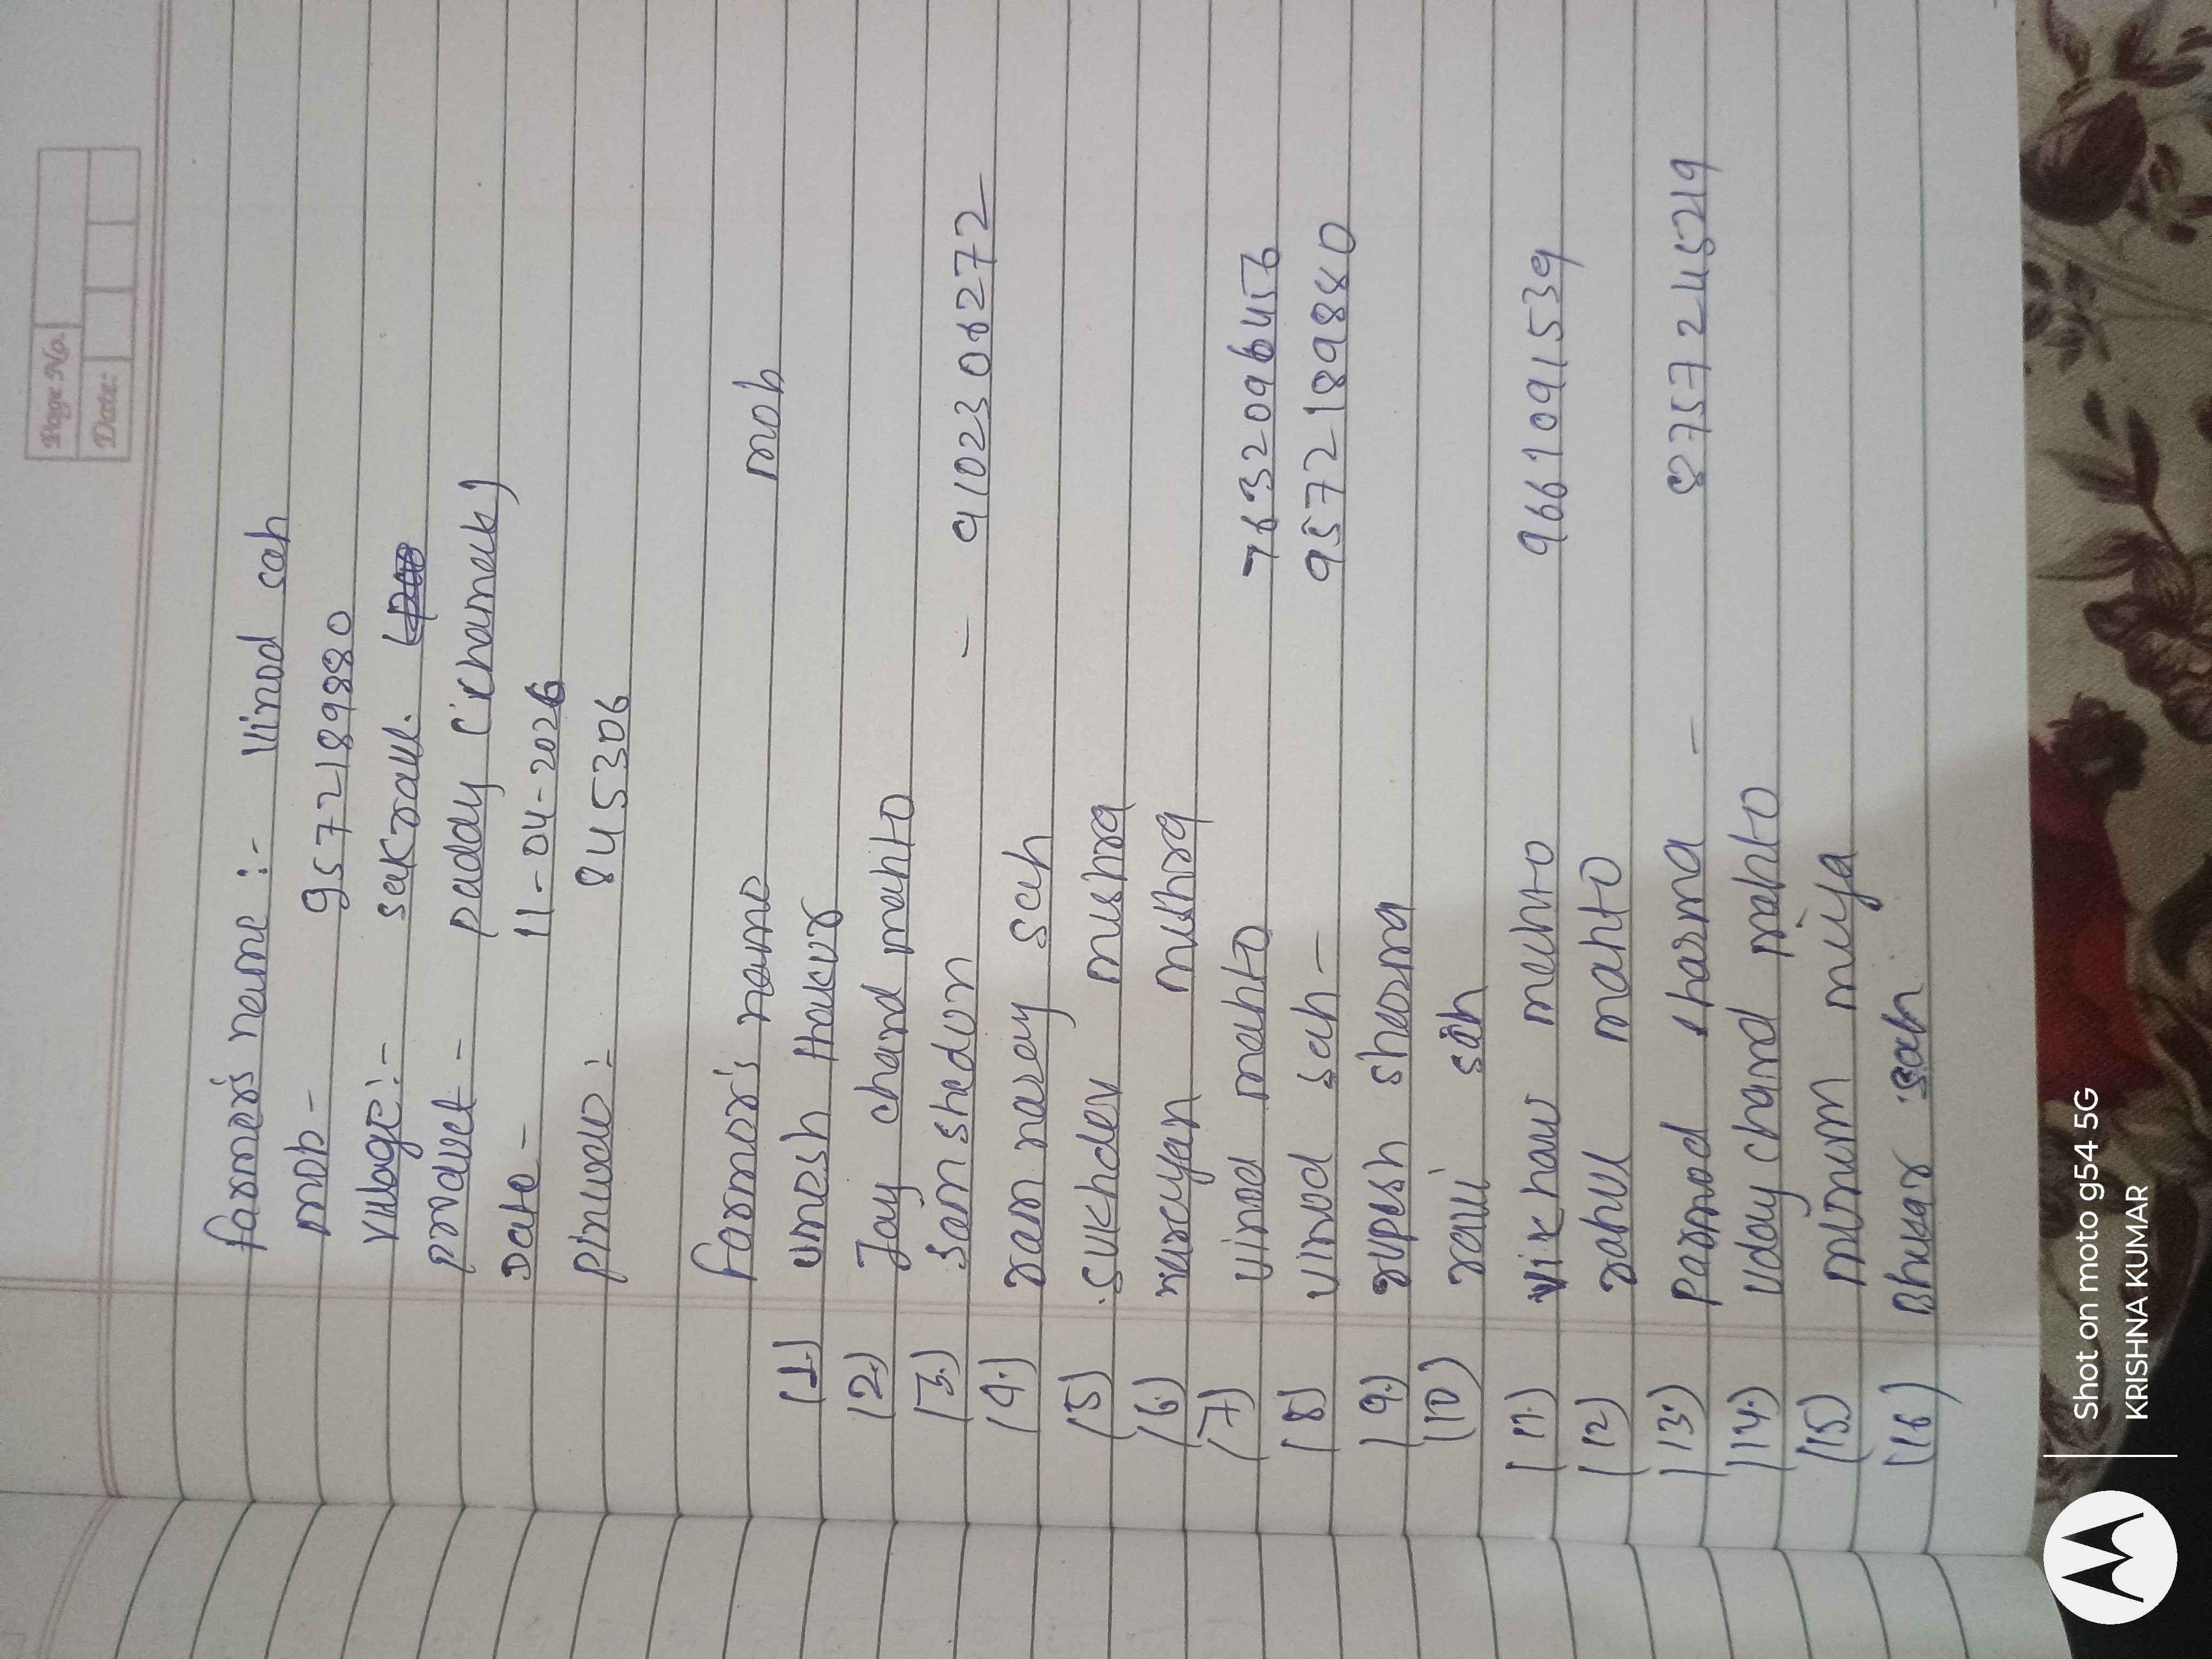 Page No.
Date:
farmer's name :- Vinod sah
mob - 9572189880
village :- sakraul.
product - paddy (chamak)
Date - 11-04-2026
pincode : 845306
farmer's name mob
(1.) umesh thakur
(2.) Jay chand mahto
(3.) samshedun - 9102306272
(4.) ram narey sah
(5) sukhdev mishra
(6.) narayan mishra
(7) vinod mahto 7632096456
(8) vinod sah - 9572189880
(9.) rupesh sharma
(10) ravi sah
(11.) mahto 9661091539
(12) rahul mahto
(13) Parmod sharma - 8757245219
(14.) Uday chand mahto
(15.) miya
(16) Bhuar sah
Shot on moto g54 5G
KRISHNA KUMAR